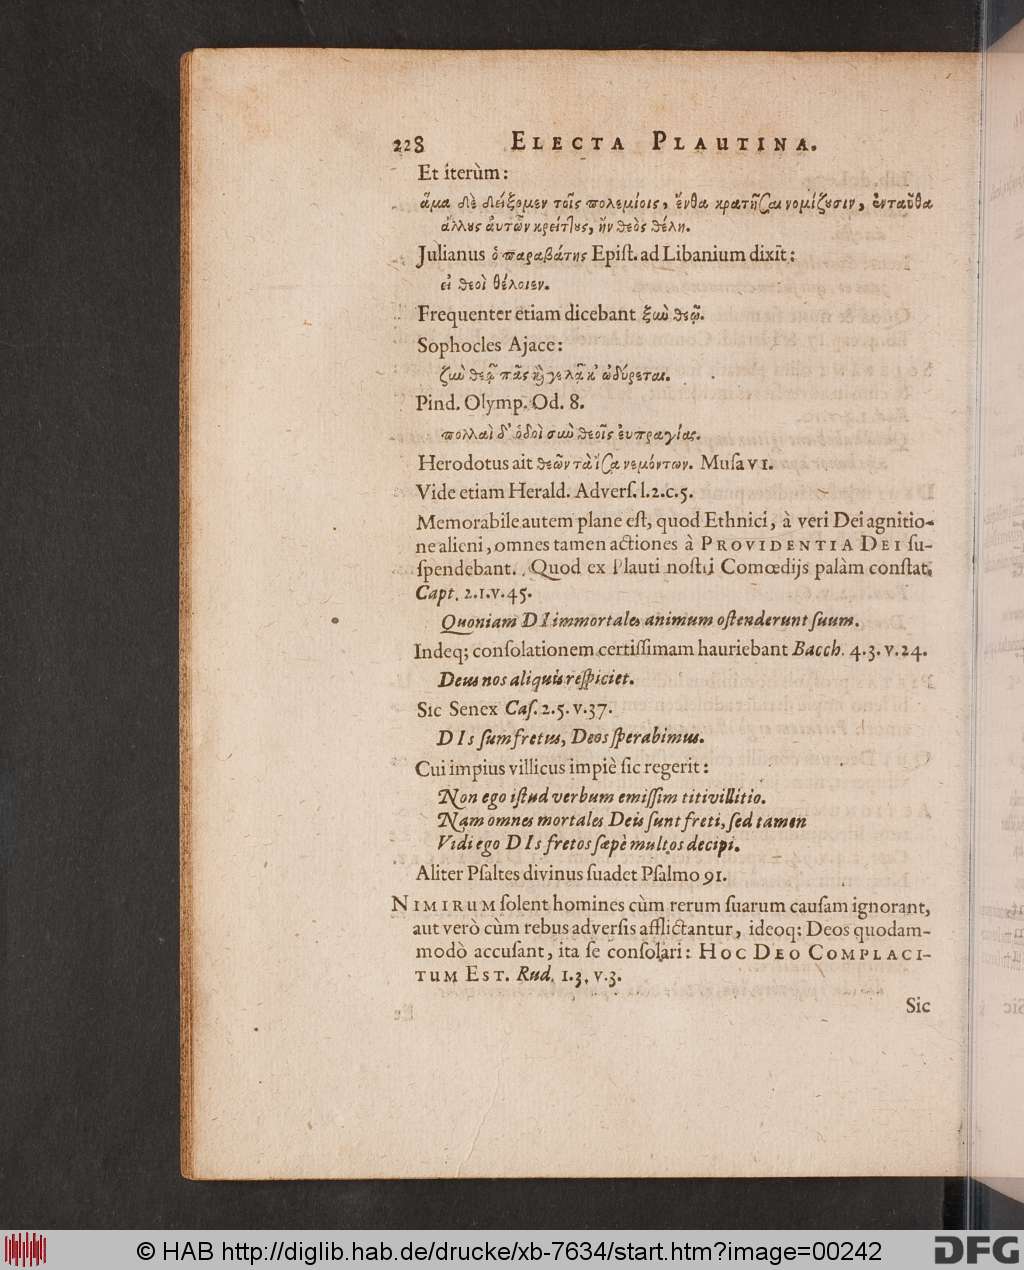 228 ELECTA PLAUTINA.
Et iterùm:
ἅμα δὲ δείξομεν τοῖς πολεμίοις, ἔνθα κρατῆσαι νομίζουσιν, ἐνταῦθα
ἄλλους ἀυτῶν κρείττους, ἢν θεὸς θέλη.
Julianus ὁ παραβάτης Epiſt. ad Libanium dixit:
εἰ θεοὶ θέλοιεν.
Frequenter etiam dicebant ξιω θεῷ.
Sophocles Ajace:
ζιὼ θεῷ πᾶς καὶ γελᾷ κ' ὠδύρεται.
Pind. Olymp. Od. 8.
πολλαὶ δ' ὁδοὶ σιὼ θεοῖς ἐυπραγίας.
Herodotus ait θεῶν τὰ ἴσα νεμόντων. Muſa VI.
Vide etiam Herald. Adverſ. l.2.c.5.
Memorabile autem plane eſt, quod Ethnici, à veri Dei agnitio-
ne alieni, omnes tamen actiones à PROVIDENTIA DEI ſu-
ſpendebant. Quod ex Plauti noſtri Comœdijs palàm conſtat.
Capt. 2.1.v.45.
Quoniam DI immortales animum oſtenderunt ſuum.
Indeq; conſolationem certiſſimam hauriebant Bacch. 4.3.v.24.
Deus nos aliquis reſpiciet.
Sic Senex Caſ. 2.5.v.37.
DIs ſum fretus, Deos ſperabimus.
Cui impius villicus impiè ſic regerit:
Non ego iſtud verbum emiſſim titivillitio.
Nam omnes mortales Deis ſunt freti, ſed tamen
Vidi ego DIs fretos ſæpè multos decipi.
Aliter Pſaltes divinus ſuadet Pſalmo 91.
NIMIRUM ſolent homines cùm rerum ſuarum cauſam ignorant,
aut verò cùm rebus adverſis afflictantur, ideoq; Deos quodam-
modò accuſant, ita ſe conſolari: HOC DEO COMPLACI-
TUM EST. Rud. 1.3. v.3.
Sic
© HAB http://diglib.hab.de/drucke/xb-7634/start.htm?image=00242
DFG